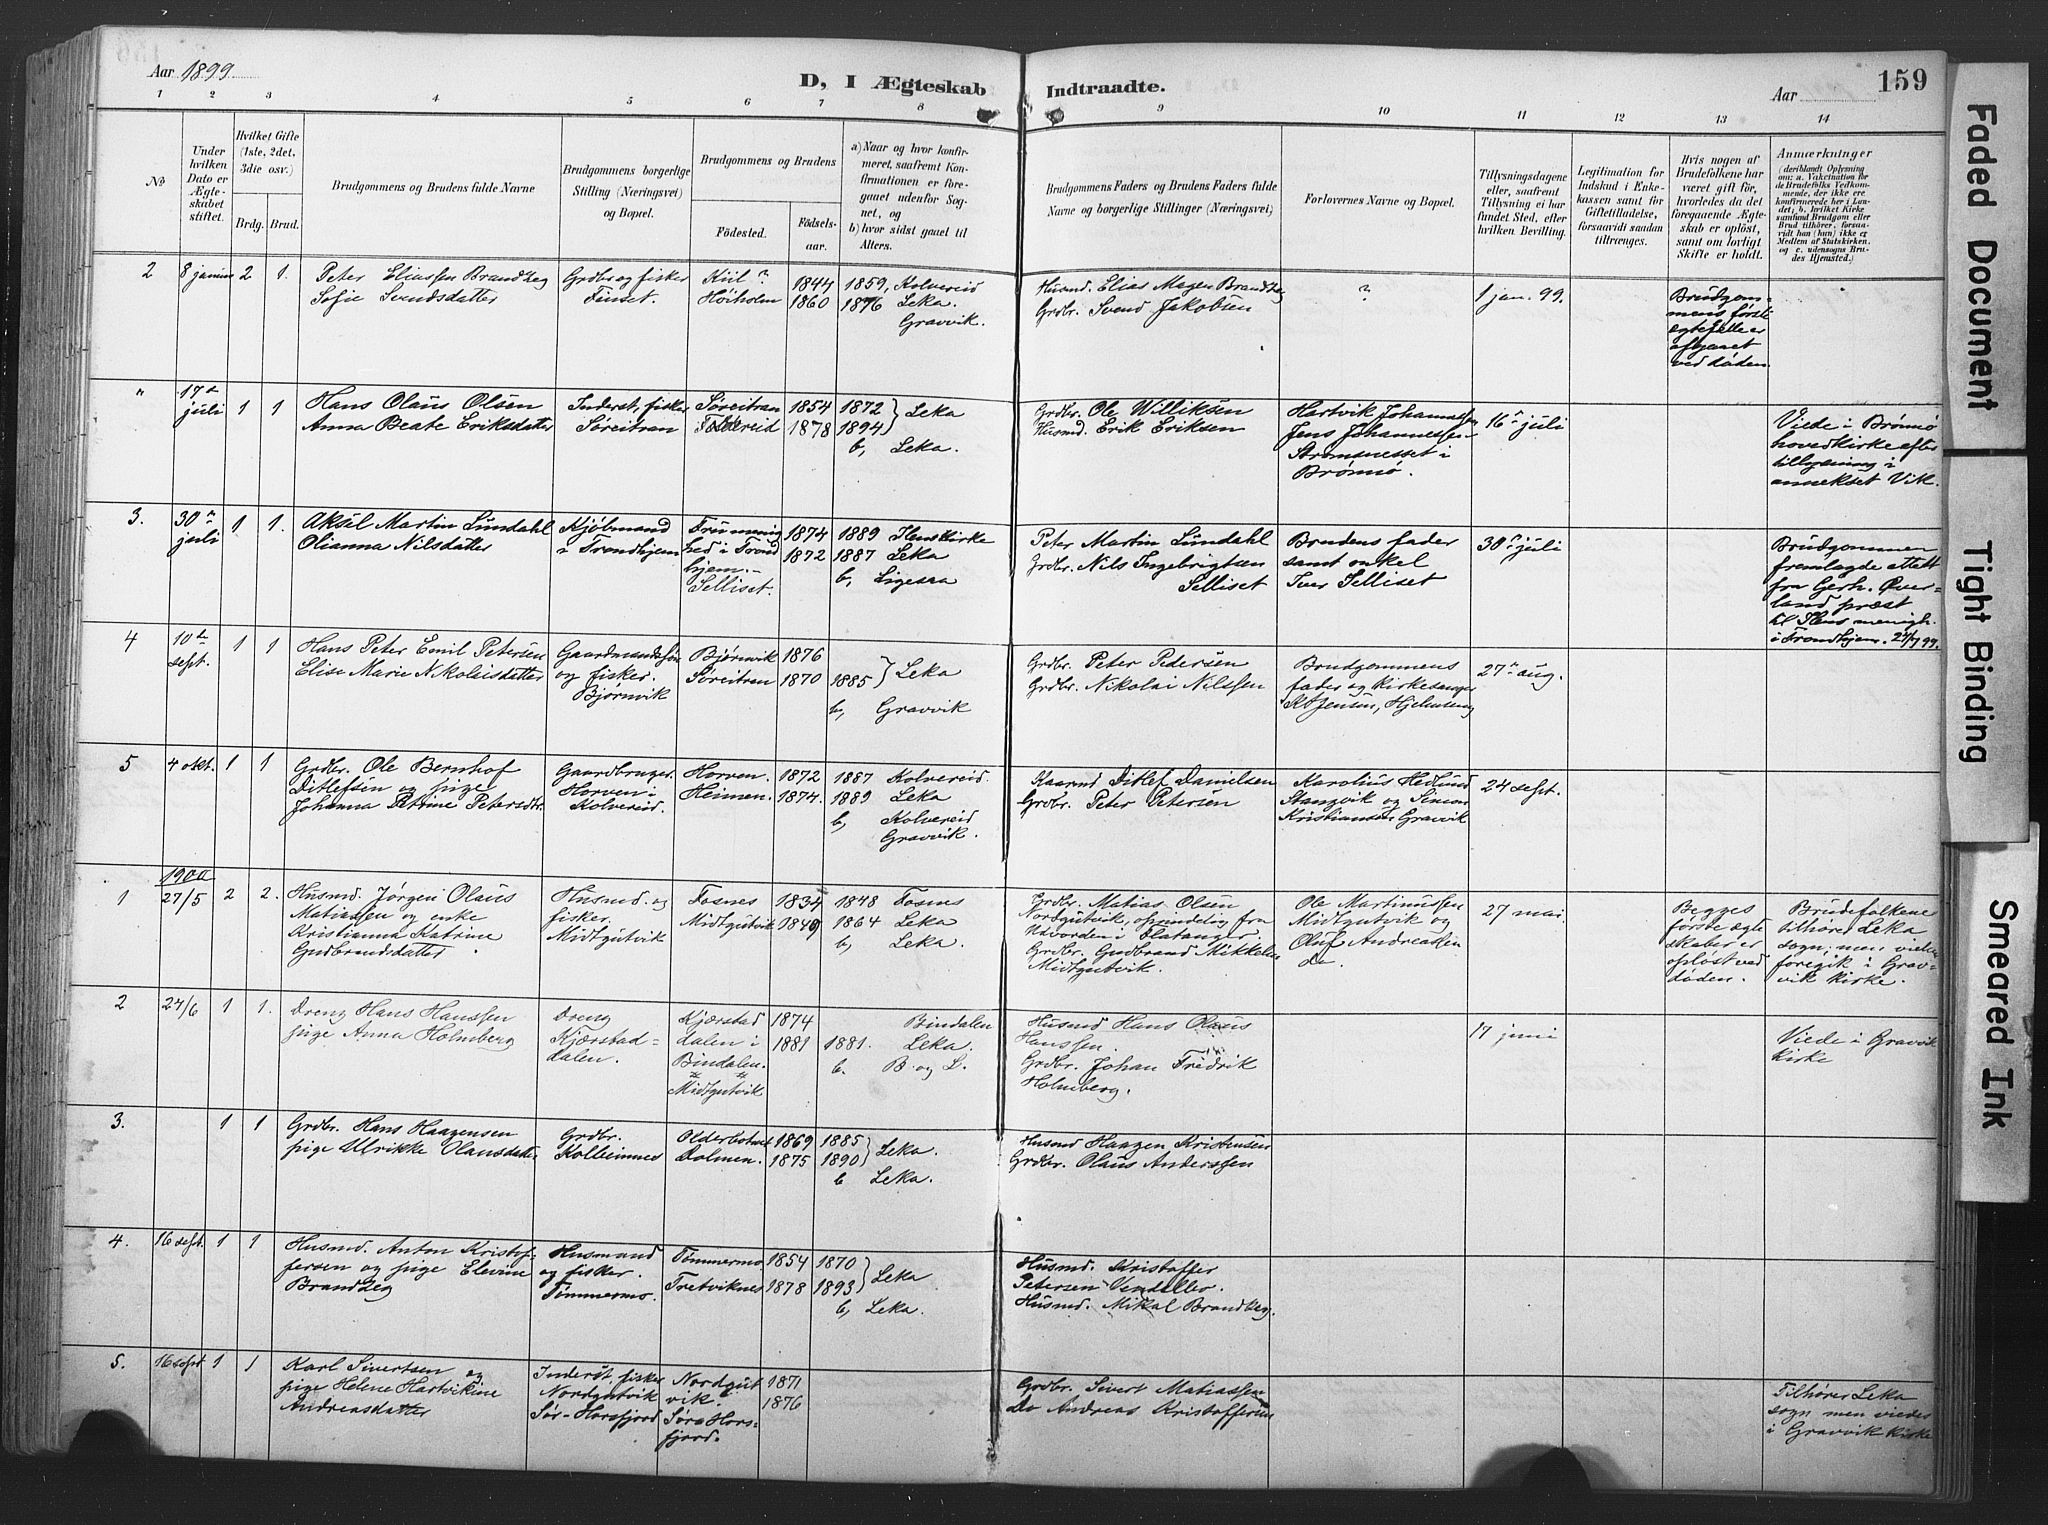 Aar 1899
D, I Ægteskab Indtraadte.
Aar
159
1 2 3 4 5 6 7 8 9 10 11 12 13 14
No
Under hvilken Dato er Ægteskabet stiftet.
Hvilket Gifte (1ste, 2det, 3die osv.)
Brdg. Brud.
Brudgommens og Brudens fulde Navne
Brudgommens borgerlige Stilling (Næringsvei) og Bopæl.
Brudgommens og Brudens
Fødested.
Fødselsaar.
a) Naar og hvor konfirmeret, saafremt Konfirmationen er foregaaet udenfor Sognet, og
b) hvor sidst gaaet til Alters.
Brudgommens Faders og Brudens Faders fulde Navne og borgerlige Stillinger (Næringsvei)
Forlovernes Navne og Bopæl.
Tillysningsdagene eller, saafremt Tillysning ei har fundet Sted, efter hvilken Bevilling.
Legitimation for Indskud i Enkekassen samt for Giftetilladelse, forsaavidt saadan tiltrænges.
Hvis nogen af Brudefolkene har været gift før, hvorledes da det foregaaende Ægteskab er opløst, samt om lovligt Skifte er holdt.
Anmærkninger
(deriblandt Oplysning om: a. Vakcination for de Brudefolks Vedkommende, der ikke ere konfirmerede her i Landet; b. hvilket Kirkesamfund Brudgom eller Brud tilhører, forsaavidt han (hun) ikke er Medlem af Statskirken, og c. udensogns Brudes Hjemsted.)
2 8 januar 2 1.
Peter Eliassen Brandzeg
Sofie Svendsdatter
Grdbr og fisker
Finset.
Kiil ?
Høiholm
1844
1860
1859, Kolvereid
1876 Leka.
Gravvik.
Husmd. Elias Magen Brandzeg
Grdbr. Svend Jakobsen
?
1 jan. 99.
Brudgom-
mens første
egtefelle er
afgaaet
ved døden.
" 17de juli 1 1
Hans Olaus Olsen
Anna Beate Eriksdatter
Inderst, fisker
Søreitran
Søreitran
Foldereid
1854
1878
1872 } Leka
1894
b, Leka.
Grdbr. Ole Williksen
Husmd. Erik Eriksen
Hartvik Johannessen
Jens Johannessen
Strømsnesset i
Brønnø.
16de juli
Viede i Brønnø
hovedkirke efter
tillysning i
annekset Vik.
3. 30te juli 1 1.
Aksel Martin Lundahl
Olianna Nilsdatter
Kjøbmand
i Trondhjem
Frue menig-
hed i Trond
hjem.-
Selliset.
1874
1872
1889 Ilens kirke
1887 Leka
b, Ligesaa
Peter Martin Lundahl
Grdbr. Nils Ingebrigtsen
Selliset
Brudens fader
samt onkel
Iver Selliset
30te juli
Brudgommen
fremlagde attest
fra Gerh. Øver-
land, præst
til Ilens menigh.
i Trondhjem. 24/7 99.
4 10de sept. 1 1
Hans Peter Emil Petersen
Elise Marie Nikolaisdatter
Gaardmandssøn
og fisker.
Bjørnvik
Bjørnvik
Søreitran
1876
1870
} Leka
1885
b, Gravvik
Grdbr. Peter Pedersen
Grdbr. Nikolai Nilssen
Brudgommens
fader og kirkesanger
Jensen, Hjelmseng
27de aug.
5 4 okt. 1 1
Grdbr. Ole Bernhof
Ditlefsen og pige
Johanna Petrine Petersdtr.
Gaardbruger
Horven i
Kolvereid.
Horven.
Heimen.
1872
1874.
1887 Kolvereid.
1889 Leka
b, Kolvereid
Gravvik.
Kaarmd Ditlef Danielsen
Grdbr. Peter Petersen
Karolius Hedlund
Stangvik og Simon
Kristiansen Gravvik
24 sept.
1900
1 27/5 2 2.
Husmd. Jørgen Olaus
Matiassen og enke
Kristianna Katrine
Gudbrandsdatter.
Husmd. og
fisker.
Midtgutvik
Fosnes
Midtgutvik
1834
1849
1848 Fosnes
1864 Leka
b, Leka.
Grdbr. Matias Olsen
Nordgutvik, oprindelig fra
Udvorden i Flatanger.
Grdbr. Gudbrand Mikkelsen
Midtgutvik.
Ole Martinussen
Midtgutvik og
Oluf Andreassen
do.
27 mai
Begges
første egte
skaber er
opløst ved
døden.
Brudefolkene
tilhører Leka
sogn; men vielsen
foregik i Grav-
vik kirke.
2 24/6 1 1.
Dreng Hans Hanssen
pige Anna Holmberg
Dreng
Kjærstad-
dalen.
Kjærstad
dalen i
Bindalen.
Midtgutvik
1874
1881
Bindalen
1881. Leka.
b. B. og L.
Husmd Hans Olaus
Hanssen.
Grdbr. Johan Fredrik
Holmberg.
17 juni
Viede i Gravvik
kirke
3. 1 1
Grdbr. Hans Haagensen
pige Ullrikke Olausdatter
Grdbr.
Kolbeinnes
Olderbotnet
Dolmen.
1869
1875
1885 } Leka.
1890
b Leka.
Husmd Haagen Kristensen
Grdbr. Olaus Anderssen
4. 16 sept. 1 1
Husmd. Anton Kristof-
fersen og pige Elevine
Brandzeg
Husmand
og fisker.
Tømmermo.
Tømmermo
Tretviknes
1854
1878
1870 } Leka
1893
b, Leka.
Husmd. Kristoffer
Petersen Vendelbo.
Husmd. Mikal Brandzeg.
5. 16 sept 1 1
Karl Sivertsen og
pige Helene Hartvikine
Andreasdatter
Inderst, fisker
Nordgutvik
Sør-Horsfjord
Nordgut
vik.
Søre Hors-
fjord.
1871
1876
Grdbr. Sivert Matiassen
Do Andreas Kristoffersen
Tilhører Leka
sogn men viedes
i Gravvik kirke
Faded Document
Tight Binding
Smeared Ink